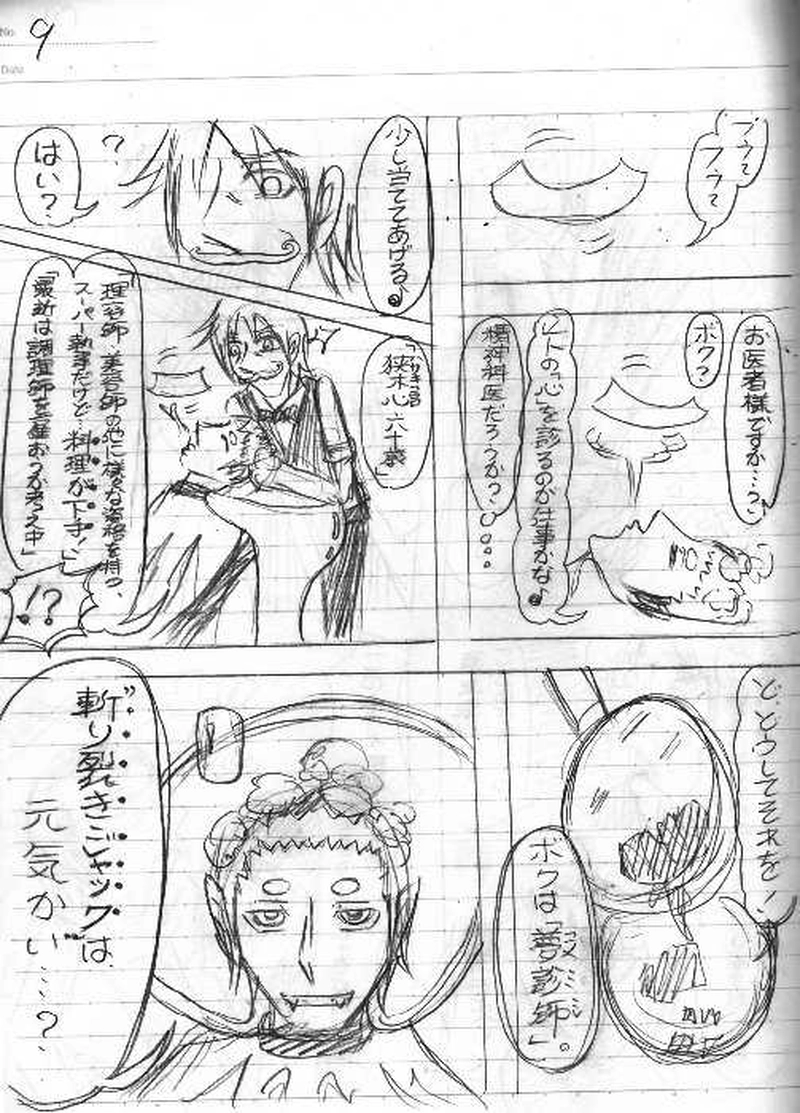 No. 9
Date
フゥ〜
フゥ〜
お医者様ですか…?
ボク?
ヒトの「心を診るのが仕事かな♪
精神科医だろうか?
少し当ててあげる♪
?
はい?
狭木心 六十歳」
「理容師・美容師の他に様々な資格を持つ、
スーパー執事だけど…料理が下手!」
「最近は調理師を
考え中」
!?
ど、どうしてそれを!
ボクは「夢診師」。
斬り裂きジャックは
元気かい…?